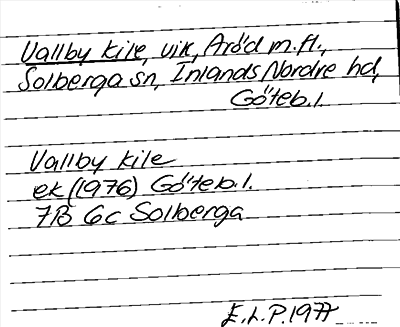 Vallby kile, vik, Aröd m.fl.,
Solberga sn, Inlands Nordre hd,
Göteb.l.
Vallby kile
ek (1976) Göteb.l.
7B 6c Solberga
E.L.P. 1977